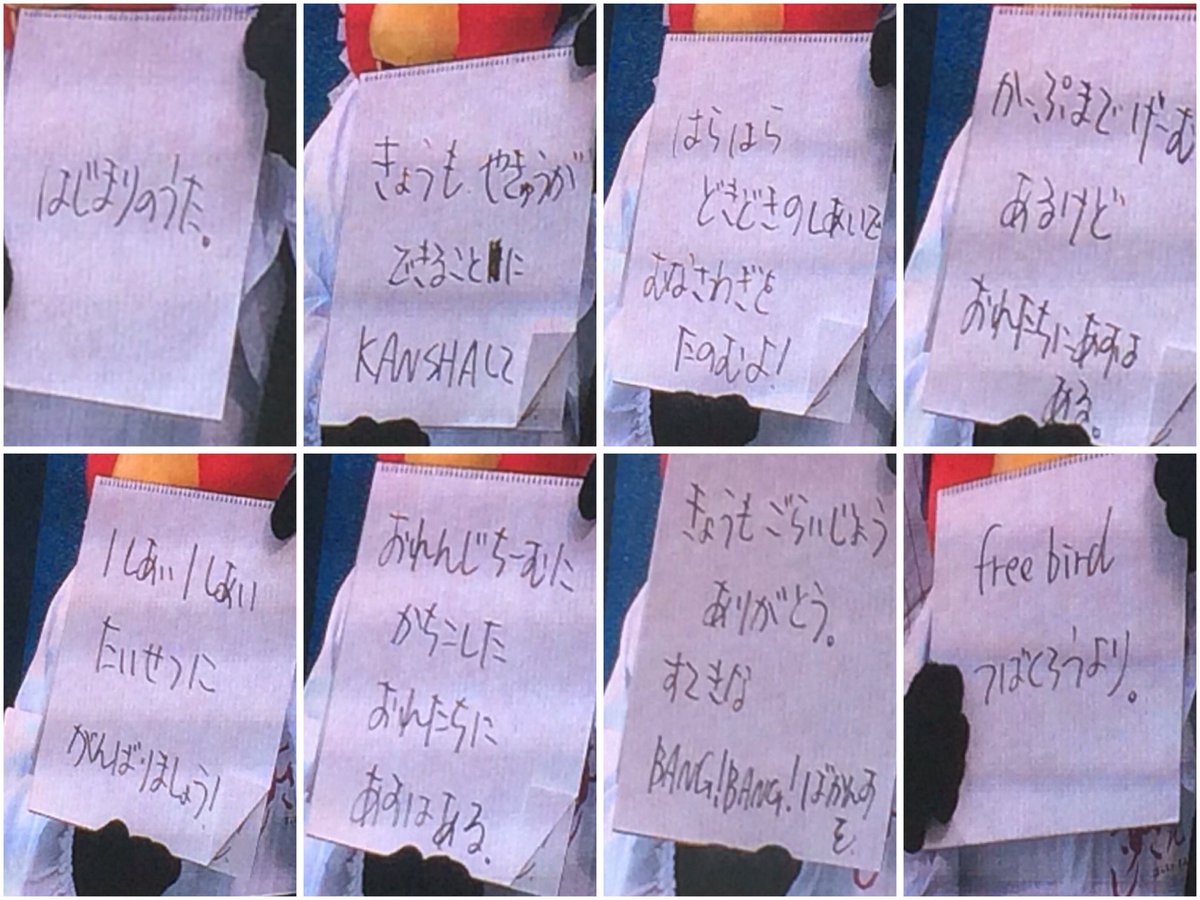 はじまりのうた。
きょうも やきゅうが
できることに
KANSHAして
はらはら
どきどきのしあいで
むなさわぎを
たのむよ!
かーぷまでげーむ
あるけど
おれたちにあすは
ある。
1しあい1しあい
たいせつに
がんばりましょう!
おれんじちーむに
かちこした
おれたちに
あすはある。
きょうもごらいじょう
ありがとう。
すてきな
BANG!BANG!ばかんす
を。
free bird
つばくろうより。